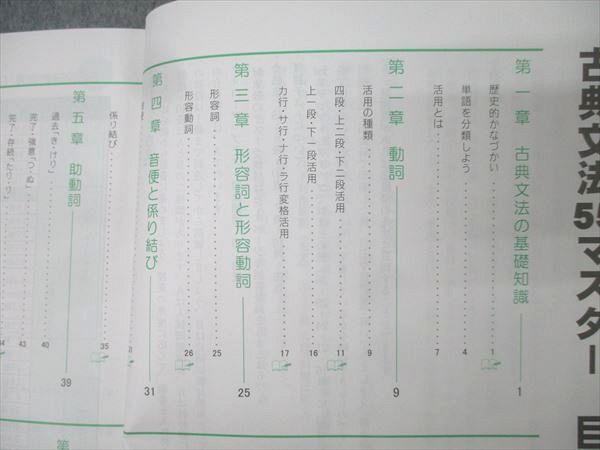 古典文法55マスター 目
第一章 古典文法の基礎知識 1
歴史的かなづかい 1
単語を分類しよう 4
活用とは 7
第二章 動詞 9
活用の種類 9
四段・上二段・下二段活用 11
上一段・下一段活用 16
カ行・サ行・ナ行・ラ行変格活用 17
第三章 形容詞と形容動詞 25
形容詞 25
形容動詞 26
第四章 音便と係り結び 31
係り結び 35
第五章 助動詞 39
過去「き・けり」 40
完了・強意「つ・ぬ」 43
完了・存続「たり・り」
第